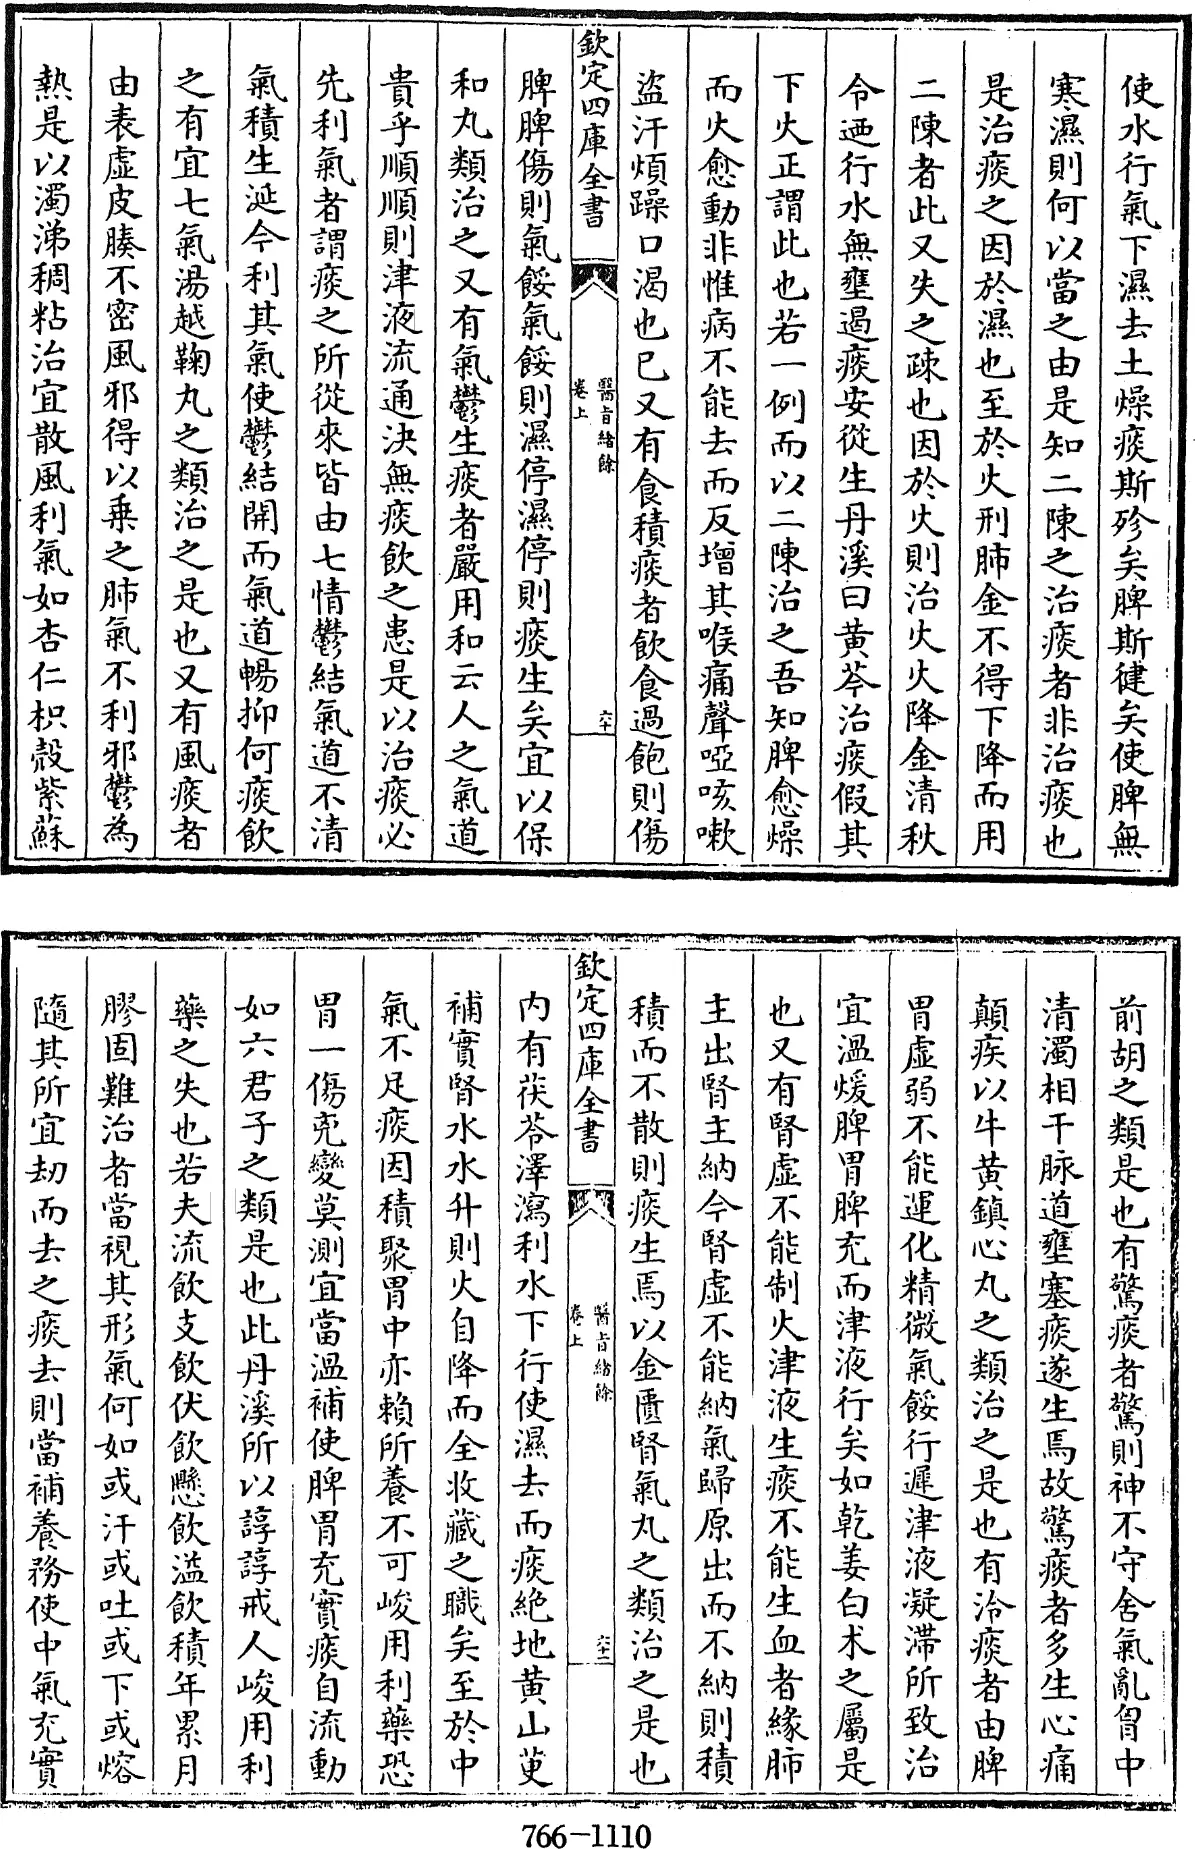 使水行氣下濕去土燥痰斯殄矣脾斯健矣使脾無
寒濕則何以當之由是知二陳之治痰者非治痰也
是治痰之因於濕也至於火刑肺金不得下降而用
二陳者此又失之疎也因於火則治火火降金清秋
令迺行水無壅遏痰安從生丹溪曰黄芩治痰假其
下火正謂此也若一例而以二陳治之吾知脾愈燥
而火愈動非惟病不能去而反增其喉痛聲啞咳嗽
盜汗煩躁口渴也已又有食積痰者飲食過飽則傷
欽定四庫全書
醫旨緒餘
卷上
六十
脾脾傷則氣餒氣餒則濕停濕停則痰生矣宜以保
和丸類治之又有氣鬱生痰者嚴用和云人之氣道
貴乎順順則津液流通決無痰飲之患是以治痰必
先利氣者謂痰之所從來皆由七情鬱結氣道不清
氣積生涎今利其氣使鬱結開而氣道暢抑何痰飲
之有宜七氣湯越鞠丸之類治之是也又有風痰者
由表虛皮腠不密風邪得以乗之肺氣不利邪鬱為
熱是以濁涕稠粘治宜散風利氣如杏仁枳殻紫蘇
前胡之類是也有驚痰者驚則神不守舍氣亂胷中
清濁相干脉道壅塞痰遂生焉故驚痰者多生心痛
顛疾以牛黄鎮心丸之類治之是也有冷痰者由脾
胃虛弱不能運化精微氣餒行遲津液凝滯所致治
宜溫煖脾胃脾充而津液行矣如乾姜白术之屬是
也又有腎虛不能制火津液生痰不能生血者緣肺
主出腎主納今腎虛不能納氣歸原出而不納則積
積而不散則痰生焉以金匱腎氣丸之類治之是也
欽定四庫全書
醫旨緒餘
卷上
六十一
内有茯苓澤瀉利水下行使濕去而痰絶地黄山茰
補實腎水水升則火自降而全收藏之職矣至於中
氣不足痰因積聚胃中亦賴所養不可峻用利藥恐
胃一傷兖變莫測宜當溫補使脾胃充實痰自流動
如六君子之類是也此丹溪所以諄諄戒人峻用利
藥之失也若夫流飲支飲伏飲懸飲溢飲積年累月
膠固難治者當視其形氣何如或汗或吐或下或熔
隨其所宜刼而去之痰去則當補養務使中氣充實
766-1110